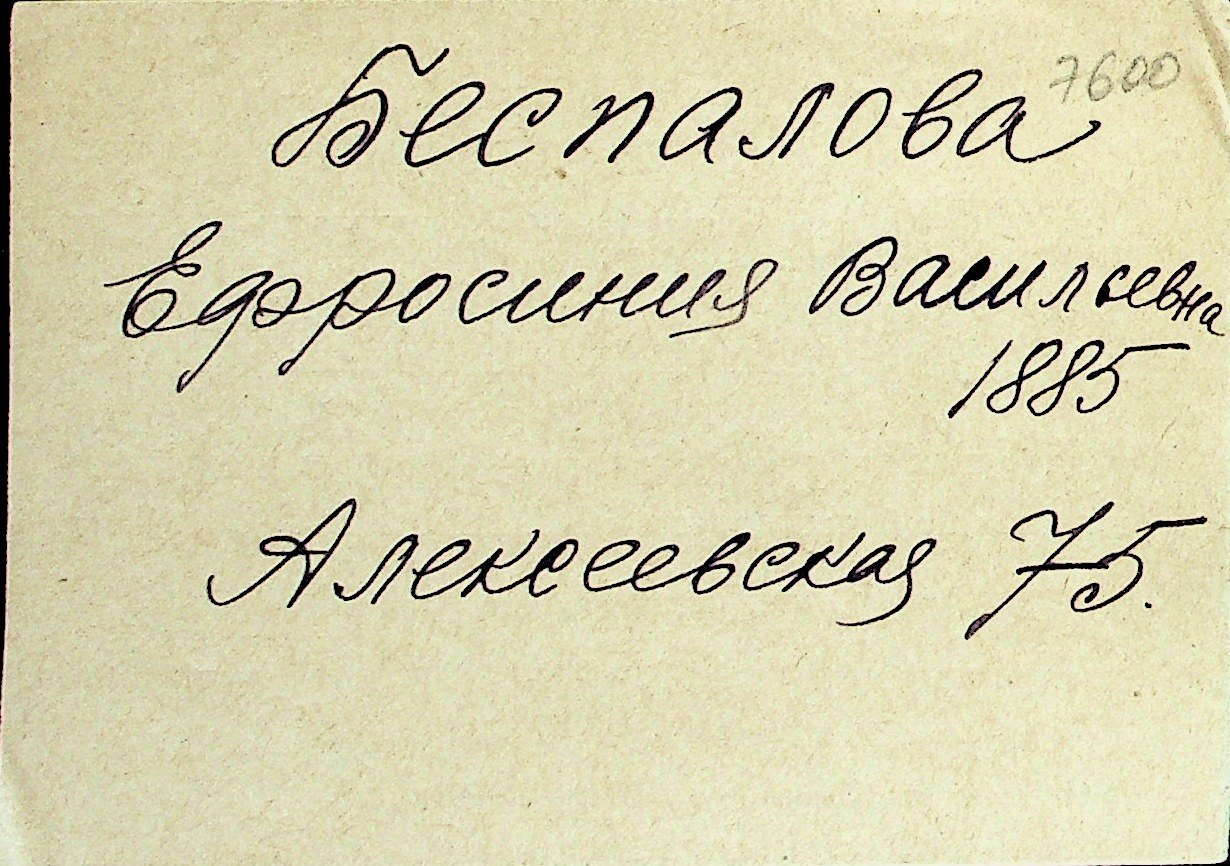 Беспалова 7600
Ефросиния Васильевна
1885
Алексеевская 75.